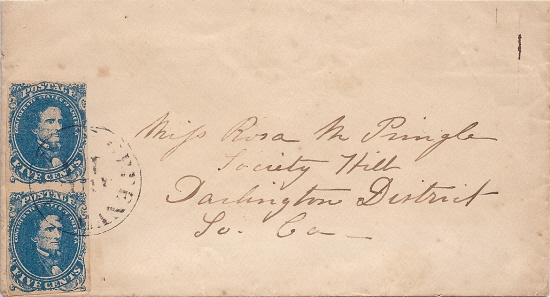 POSTAGE
CONFEDERATE STATES OF AMERICA
FIVE CENTS
POSTAGE
CONFEDERATE STATES OF AMERICA
FIVE CENTS
Miss Rosa M Pringle
Society Hill
Darlington District
So. Ca—